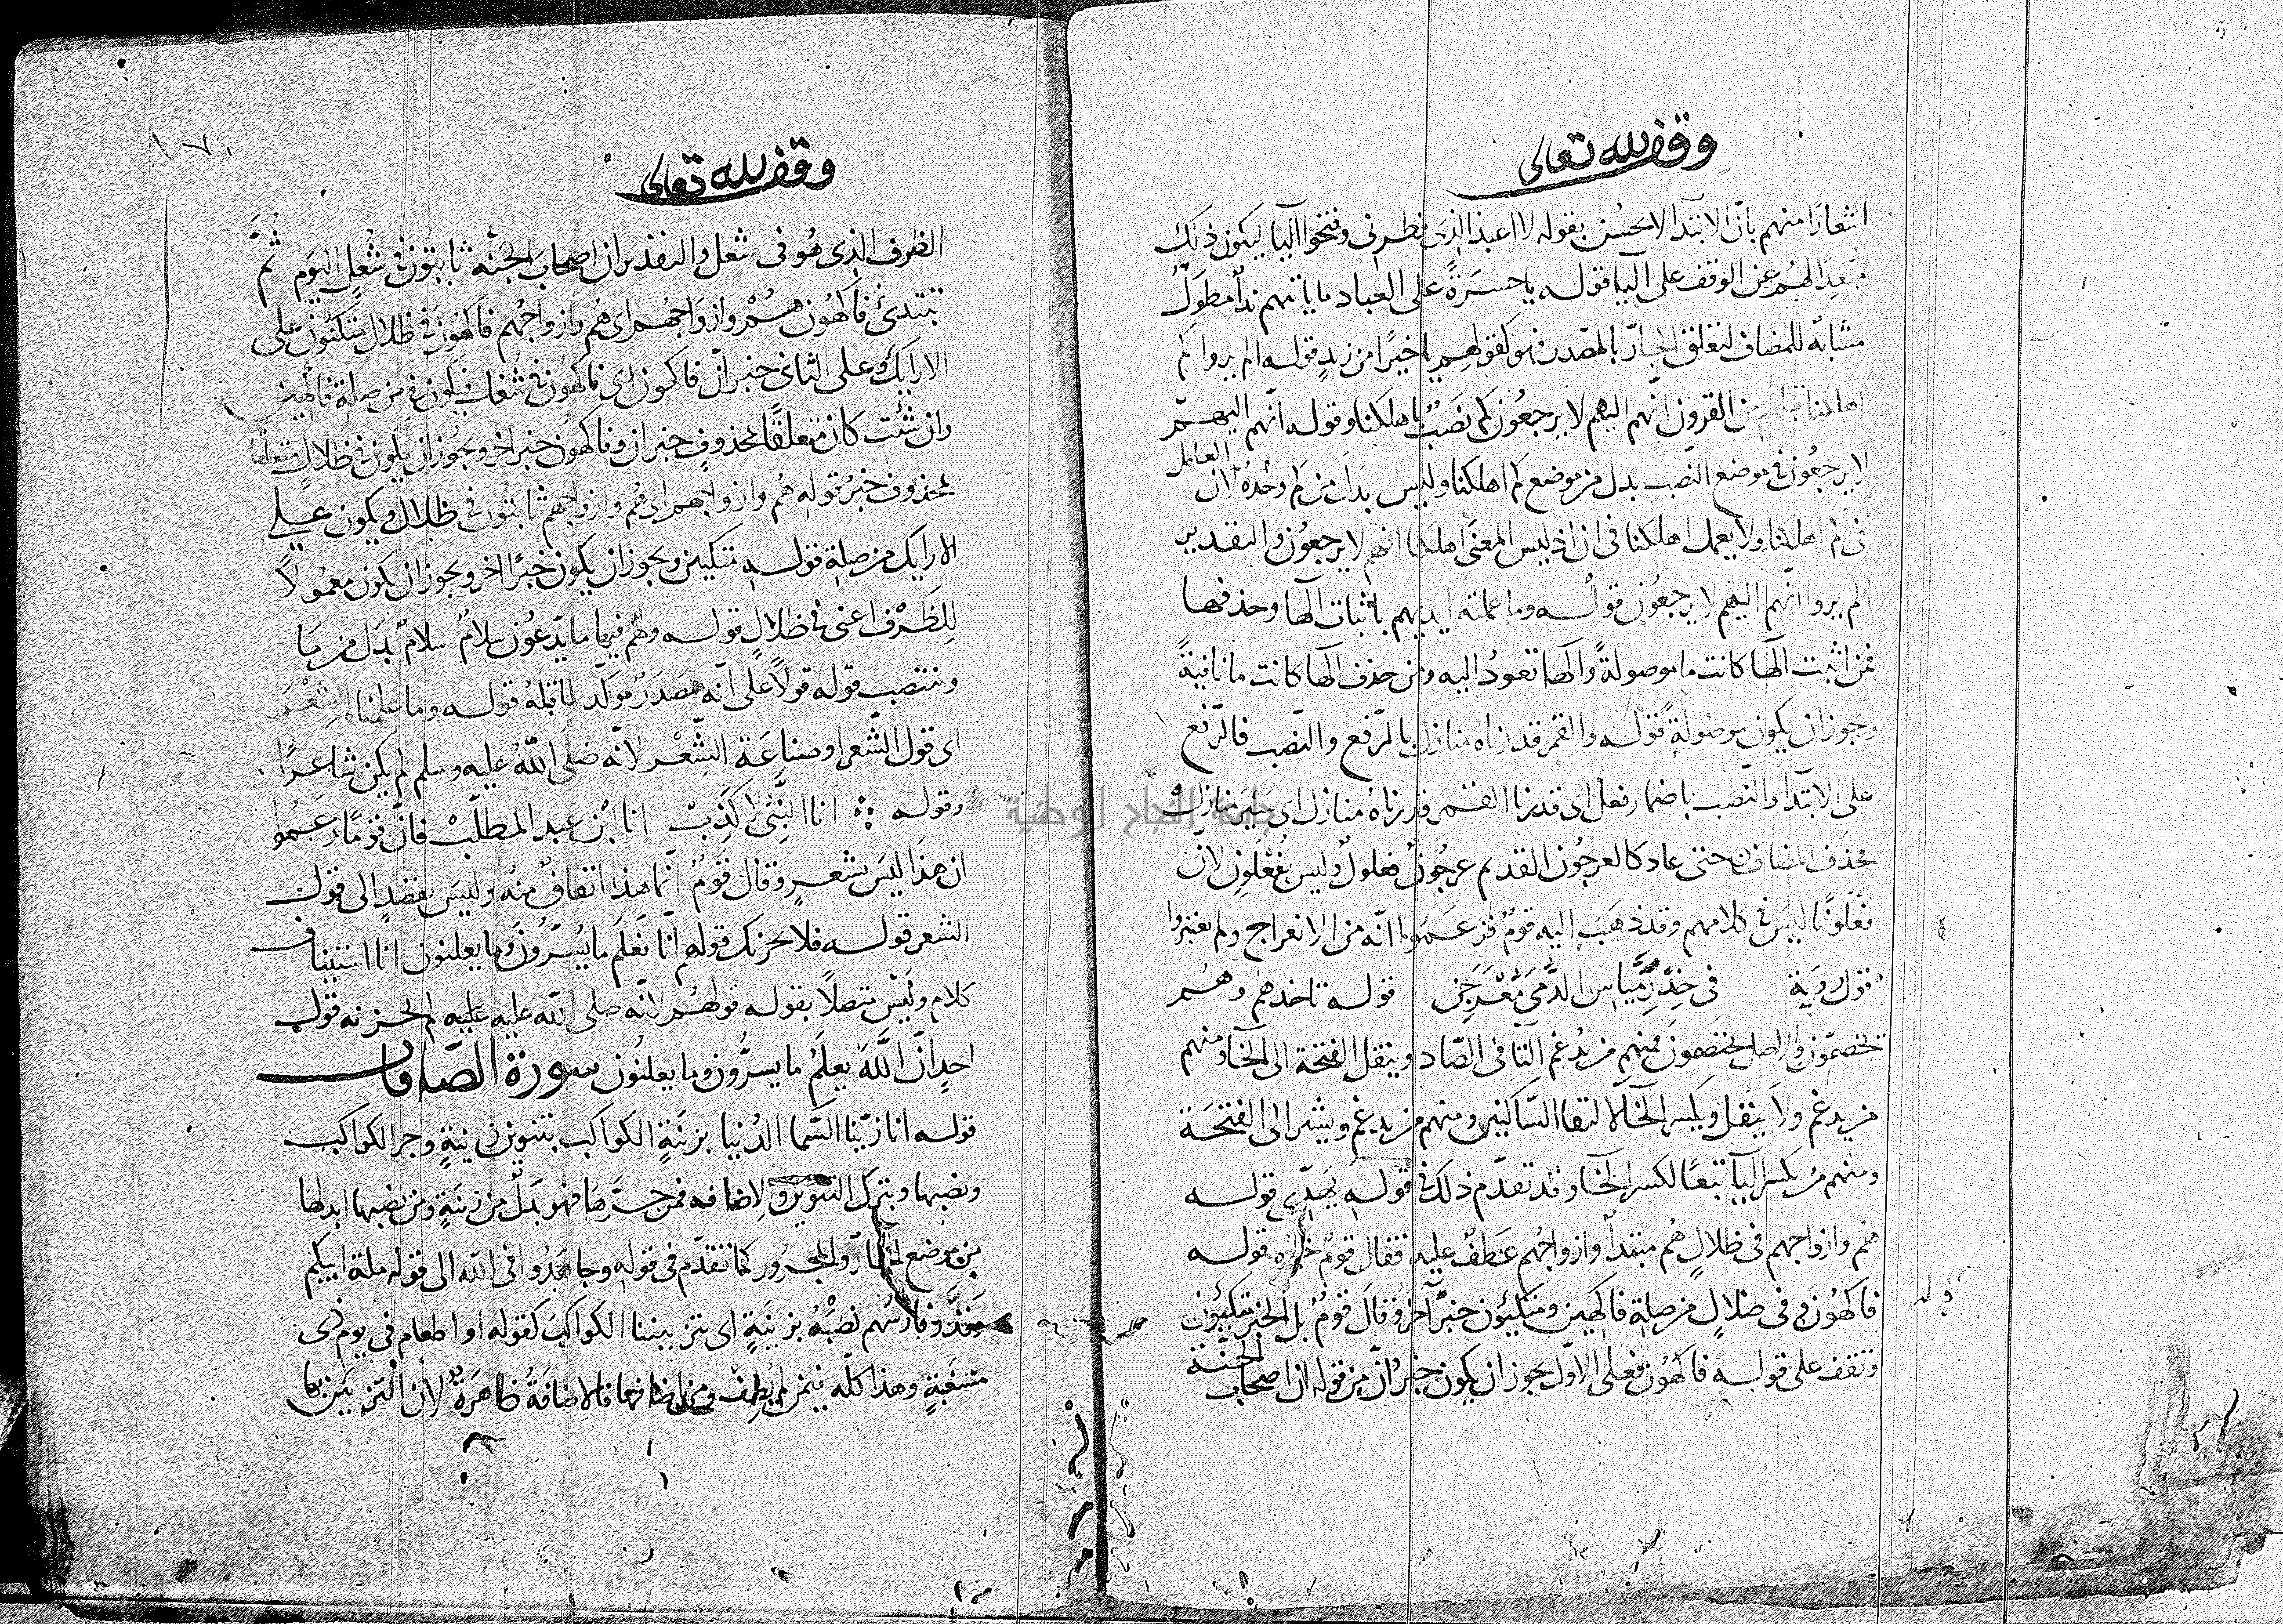 وقف لله تعالى
اشعارا منهم بان الابتدا لا يحسن بقوله لا اعبد الذى فطرنى وفتحوا اليا ليكون ذلك
مبعدا لهم عن الوقف على اليا قوله يا حسرةً على العباد ما ياتيهم ندأ مطول
مشابه للمضاف لتعلق الجارّ بالمصدر فهو كقولهم يا خيرًا من زيدٍ قوله الم يروا كم
اهلكنا قبلهم من القرون انّهم اليهم لا يرجعون كم نصبٌ باهلكنا وقوله انّهم اليهم
لا يرجعون فى موضع النصب بدل من موضع كم اهلكنا وليس بدل من كم وحده لان العامل
فى كم اهلكنا ولا يعمل اهلكنا فى ان اذ ليس المعنى اهلكنا انهم لا يرجعون والتقدير
الم يروا انّهم اليهم لا يرجعون قوله وما عملته ايديهم باثبات الها وحذفها
فمن اثبت الها كانت ما موصولةً والها تعود اليه ومن حذف الها كانت ما نافيةً
ويجوز ان يكون موصولةً قوله والقمر قدرناه منازل بالرّفع والنّصب فالرّفع
على الابتدا والنّصب باضمار فعل اى قدرنا القمر قدرناه منازل اى منازل
فحذف المضاف حتى عاد كالعرجون القديم عرجون فعلول وليس بفعلونٍ لان
فعلونًا ليس فى كلامهم وقد ذهب اليه قوم فزعموا انّه من الانعراج ولم
قول روبة فى خدر ميّاس الدّمى معرجن قوله تاخذهم وهم
يخصمون والاصل يختصمون فمنهم من يدغم التا فى الصّاد وينقل الفتحة الى الخا ومنهم
من يدغم ولا ينقل ويكسر الخا لالتقا السّاكنين ومنهم من يدغم ويشير الى الفتحة
ومنهم من يكسر اليا تبعًا لكسر الخا وقد تقدّم ذلك فى قوله يهدّى قوله
هم وازواجهم فى ظلالٍ هم مبتدأ وازواجهم عطف عليه فقال قوم خبره قوله
فاكهون وفى ظلالٍ من صلة فاكهين ومتكئون خبر آخر وقال قوم بل الخبر متكئون
وتقف على قوله فاكهون فعلى الاوّل يجوز ان يكون خبر انّ من قوله ان اصحاب الجنّة
قوله
وقف لله تعالى
الظرف الذى هو فى شغل والتقدير ان اصحاب الجنة ثابتون فى شغلٍ اليوم ثمّ
تبتدئ فاكهون هم وازواجهم اى هم وازواجهم فاكهون فى ظلال متكئون على
الارايك وعلى الثانى خبر انّ فاكهون اى فاكهون فى شغل فيكون فى من صلة فاكهين
وان شئت كان متعلقًا بمحذوفٍ خبر ان وفاكهون خبر اخر ويجوز ان يكون فى ظلالٍ متعلقا
بمحذوف خبر قوله هم وازواجهم اى هم وازواجهم ثابتون فى ظلال ويكون على
الارايك من صلة قوله متكين ويجوز ان يكون خبرًا اخر ويجوز ان يكون معمولاً
للظّرف اعنى فى ظلالٍ قوله ولهم فيها ما يدّعون سلامٌ سلامٌ بدل من ما
وينتصب قوله قولاً على انّه مصدر موكّد لما قبله قوله وما علمناه الشّعر
اى قول الشّعر او صناعة الشّعر لانّه صلى اللّه عليه وسلم لم يكن شاعرًا
وقوله انا النّبىّ لا كذب انا ابن عبد المطّلب فانّ قومًا زعموا
ان هذا ليس بشعرٍ وقال قومٌ انّما هذا اتفاقٌ منه وليس بقصدٍ الى قول
الشعر قوله فلا يحزنك قولهم انّا نعلم ما يسرّون وما يعلنون انا استيناف
كلام وليس متصلاً بقوله قولهم لانّه صلى اللّه عليه عليه لم يحزنه قول
احدٍ انّ اللّه يعلم ما يسرّون وما يعلنون سورة الصّافات
قوله انا زيّنا السّما الدّنيا بزينةٍ الكواكب بتنوين زينةٍ وجر الكواكب
ونصبها وبترك التنوين والاضافه فمن جرّها فهو بدل من زينةٍ ومن نصبها ابدلها
من موضع الجارّ والمجرور كما تقدّم فى قوله وجاهدوا فى اللّه الى قوله ملة ابيكم
نصبه بزينةٍ اى بتزييننا الكواكب كقوله او اطعام فى يوم ذى
مسغبةٍ وهذا كلّه فيمن لم يضف ومن اضافها فالاضافة ظاهرة لان التزيين بها
جامعة النجاح الوطنية